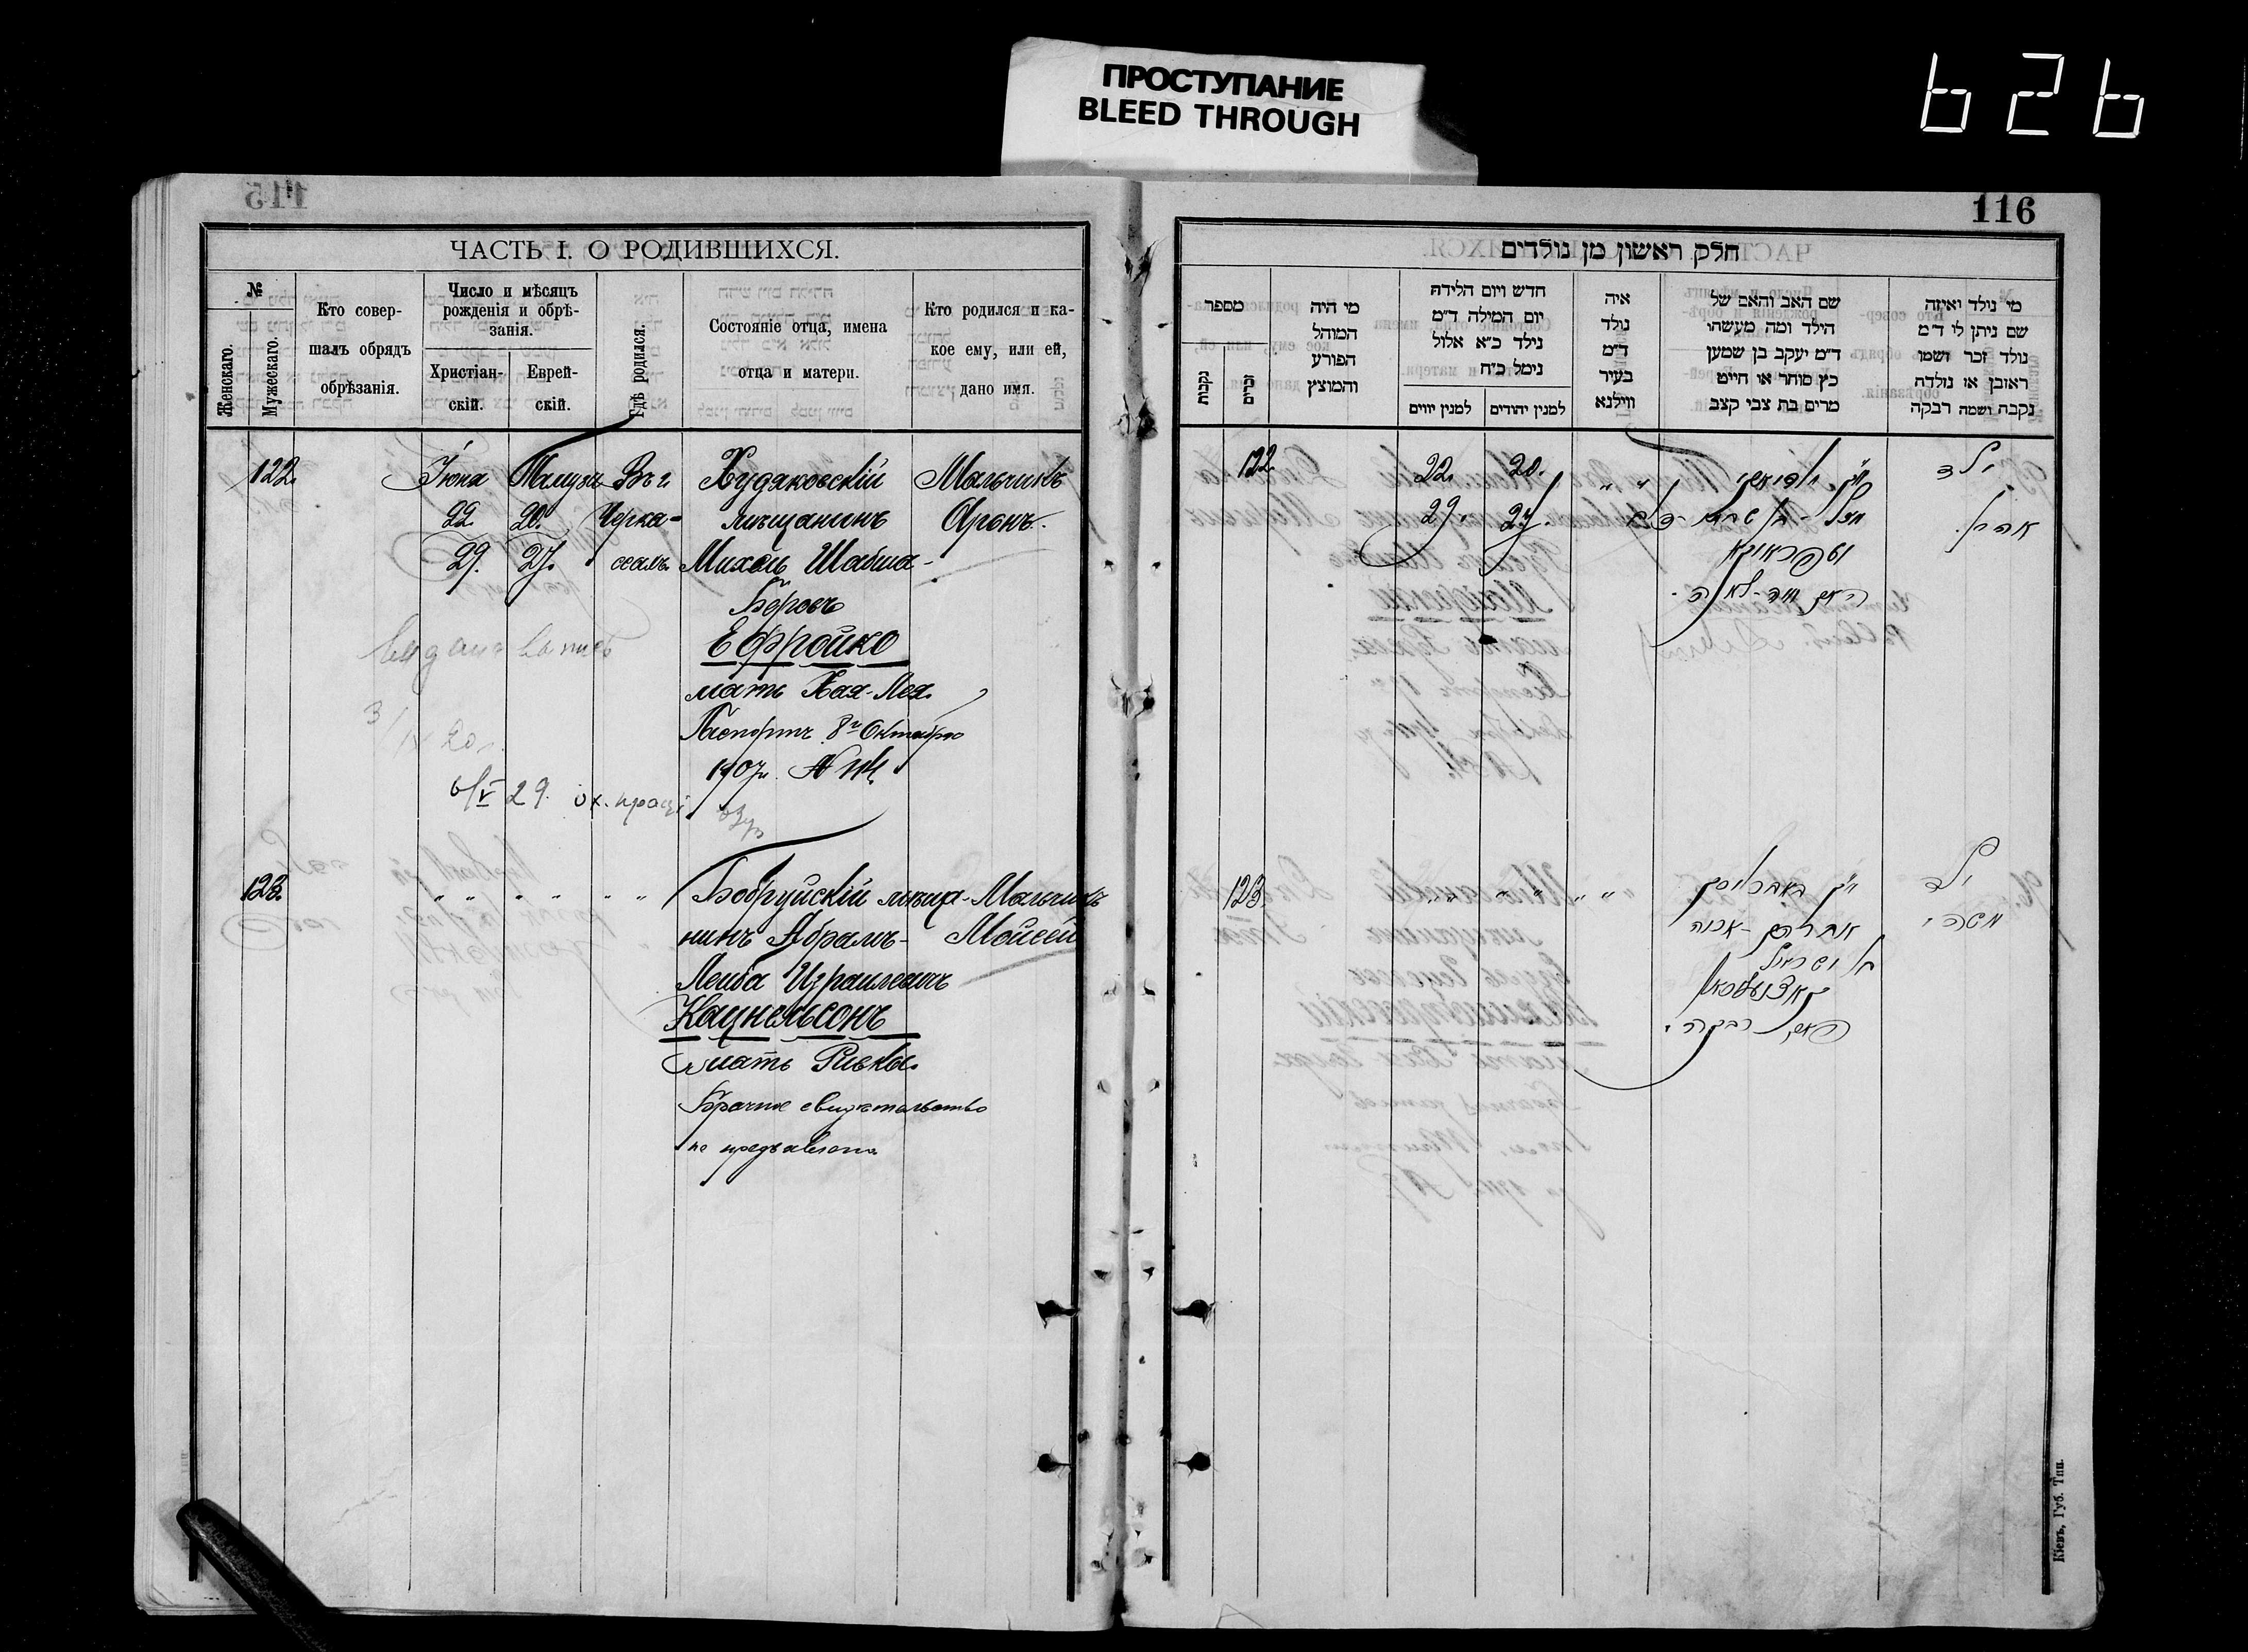 ПРОСТУПАНИЕ
BLEED THROUGH
626
115
ЧАСТЬ I. О РОДИВШИХСЯ.
№
Женскаго.
Мужескаго.
Кто совер-
шалъ обрядъ
обрѣзанія.
Число и мѣсяцъ
рожденія и обрѣ-
занія.
Христіан-
скій.
Еврей-
скій.
Гдѣ родился.
Состояніе отца, имена
отца и матери.
Кто родился и ка-
кое ему, или ей,
дано имя.
122. Іюня Тамузъ Въ г. Худяковскій Мальчикъ
22. 20. Черка- мѣщанинъ Аронъ.
29. 27. ссахъ. Михель Шабша-
Беровъ
Ефройко
мать Хая-Лея.
Паспортъ 8го Октября
1907г. №
6/V 29. ох. праці
3/IV 20
123. " " " " " " Бобруйскій мѣща- Мальчикъ
нинъ Абрамъ- Моисей
Лейба Израилевичъ
Кацнельсонъ
мать Ривка.
Брачное свидетельство
не предъявлено
116
חלק ראשון מן נולדים
מספר
נקבות
זכרים
מי היה
המוהל
הפורע
והמוצץ
חדש ויום הלידה
יום המילה ד״מ
נילד כ״א אלול
נימל כ״ח
למנין יווים
למנין יהודים
איה
נולד
ד״מ
בעיר
ווילנא
שם האב והאם של
הילד ומה מעשהו
ד״מ יעקב בן שמעון
כץ סוחר או חייט
מרים בת צבי קצב
מי נילד ואיזה
שם ניתן לו ד״מ
נולד זכר ושמו
ראובן או נולדה
נקבה ושמה רבקה
122. 22. 20. " " ילד
29. 27. אהרן.
האם חיה-לאה.
123. " " " " " " ילד
משה
אברהם
בן ישראל
קאצנעלסאן
האם רבקה.
Кіевъ, Губ. Тип.